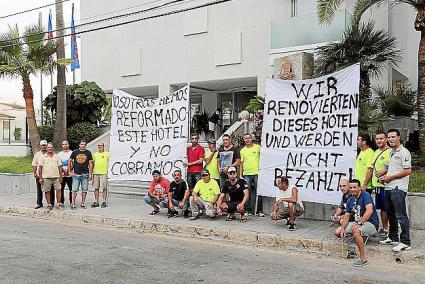 NOSOTROS HEMOS
REFORMADO
ESTE HOTEL
Y NO
COBRAMOS
WIR
RENOVIERTEN
DIESES HOTEL
UND WERDEN
NICHT
BEZAHLT!